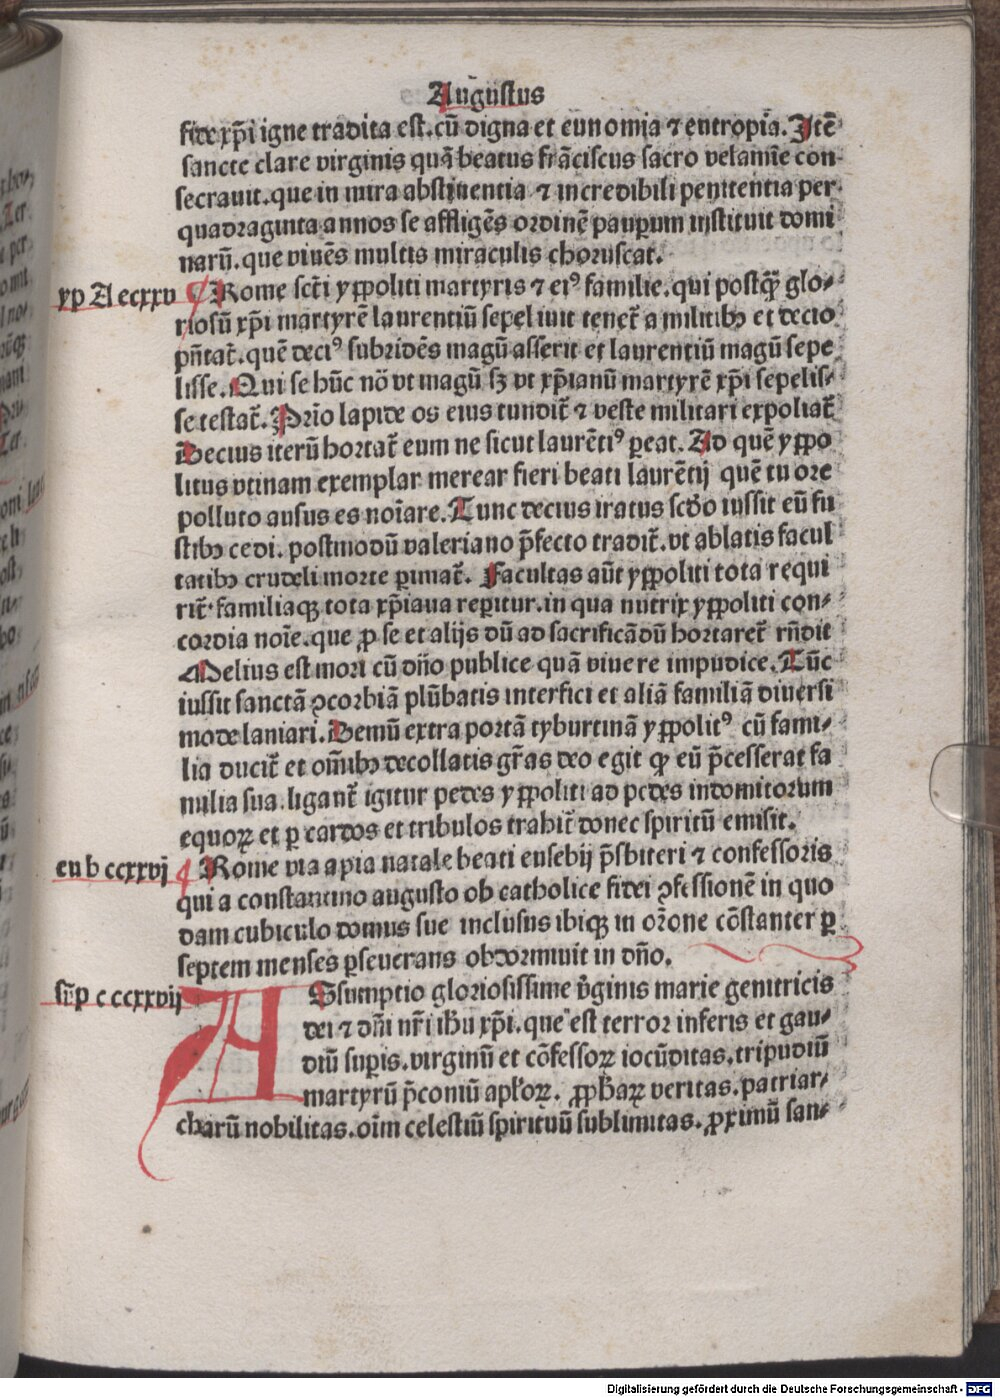 Augustus
fide xp̄i igne tradita est. cū digna et eunomia ⁊ eutropia. Itē
sancte clare virginis quā beatus frāciscus sacro velamīe con-
secrauit. que in mira abstinentia ⁊ incredibili penitentia per
quadraginta annos se affligēs ordinē pauꝑum instituit domi
narū. que viuēs multis miraculis choruscat.
yp A ccxxv ¶ Rome sct̄i yppoliti martyris ⁊ eiꝰ familie. qui postqꝫ̄ glo-
riosū xp̄i martyrē laurentiū sepeliuit tenet̄ a militibꝫ et decio
pn̄tat̄. quē deciꝰ subridēs magū asserit et laurentiū magū sepe
lisse. Qui se hūc nō vt magū sꝫ vt xp̄ianū martyrē xp̄i sepelis-
se testat̄. Prīo lapide os eius tundit̄ ⁊ veste militari expoliat̄
Decius iterū hortat̄ eum ne sicut laurētiꝰ ꝑeat. Ad quē yppo
litus vtinam exemplar merear fieri beati laurētij quē tu ore
polluto ausus es noīare. Tunc decius iratus sc̄do iussit eū fu
stibꝫ cedi. postmodū valeriano p̄fecto tradit̄. vt ablatis facul
tatibꝫ crudeli morte ꝑimat̄. Facultas aūt yppoliti tota requi
rit̄. familiaqꝫ tota xp̄iana reꝑitur. in qua nutrix yppoliti con-
cordia noīe. que ꝓ se et alijs dū ad sacrificādū hortaret̄ rn̄dit
Melius est mori cū dn̄o publice quā viuere impudice. Tūc
iussit sanctā ꝯcordiā plūbatis interfici et aliā familiā diuersi
mode laniari. Demū extra portā tyburtinā yppolitꝰ cū fami-
lia ducit̄ et om̄ibꝫ decollatis gr̄as deo egit ꝙ eū p̄cesserat fa
milia sua. ligant̄ igitur pedes yppoliti ad pedes indomitorum
equoꝝ et ꝑ cardos et tribulos trahit̄ donec spiritū emisit.
eu b ccxxvj ¶ Rome via apia natale beati eusebij p̄sbiteri ⁊ confessoris
qui a constantino augusto ob catholice fidei ꝯfessionē in quo
dam cubiculo domus sue inclusus ibiqꝫ in or̄one cōstanter ꝑ
septem menses ꝑseuerans obdormiuit in dn̄o.
sūp c ccxxvij ASsumptio gloriosissime v̄ginis marie genitricis
dei ⁊ dn̄i nr̄i ih̄u xp̄i. que est terror inferis et gau-
diū suꝑis. virginū et cōfessoꝝ iocūditas. tripudiū
martyrū p̄coniū apl̄oꝝ. ꝓph̄aꝝ veritas. patriar-
charū nobilitas. oīm celestiū spirituū sublimitas. ꝓximū san-
Digitalisierung gefördert durch die Deutsche Forschungsgemeinschaft - DFG